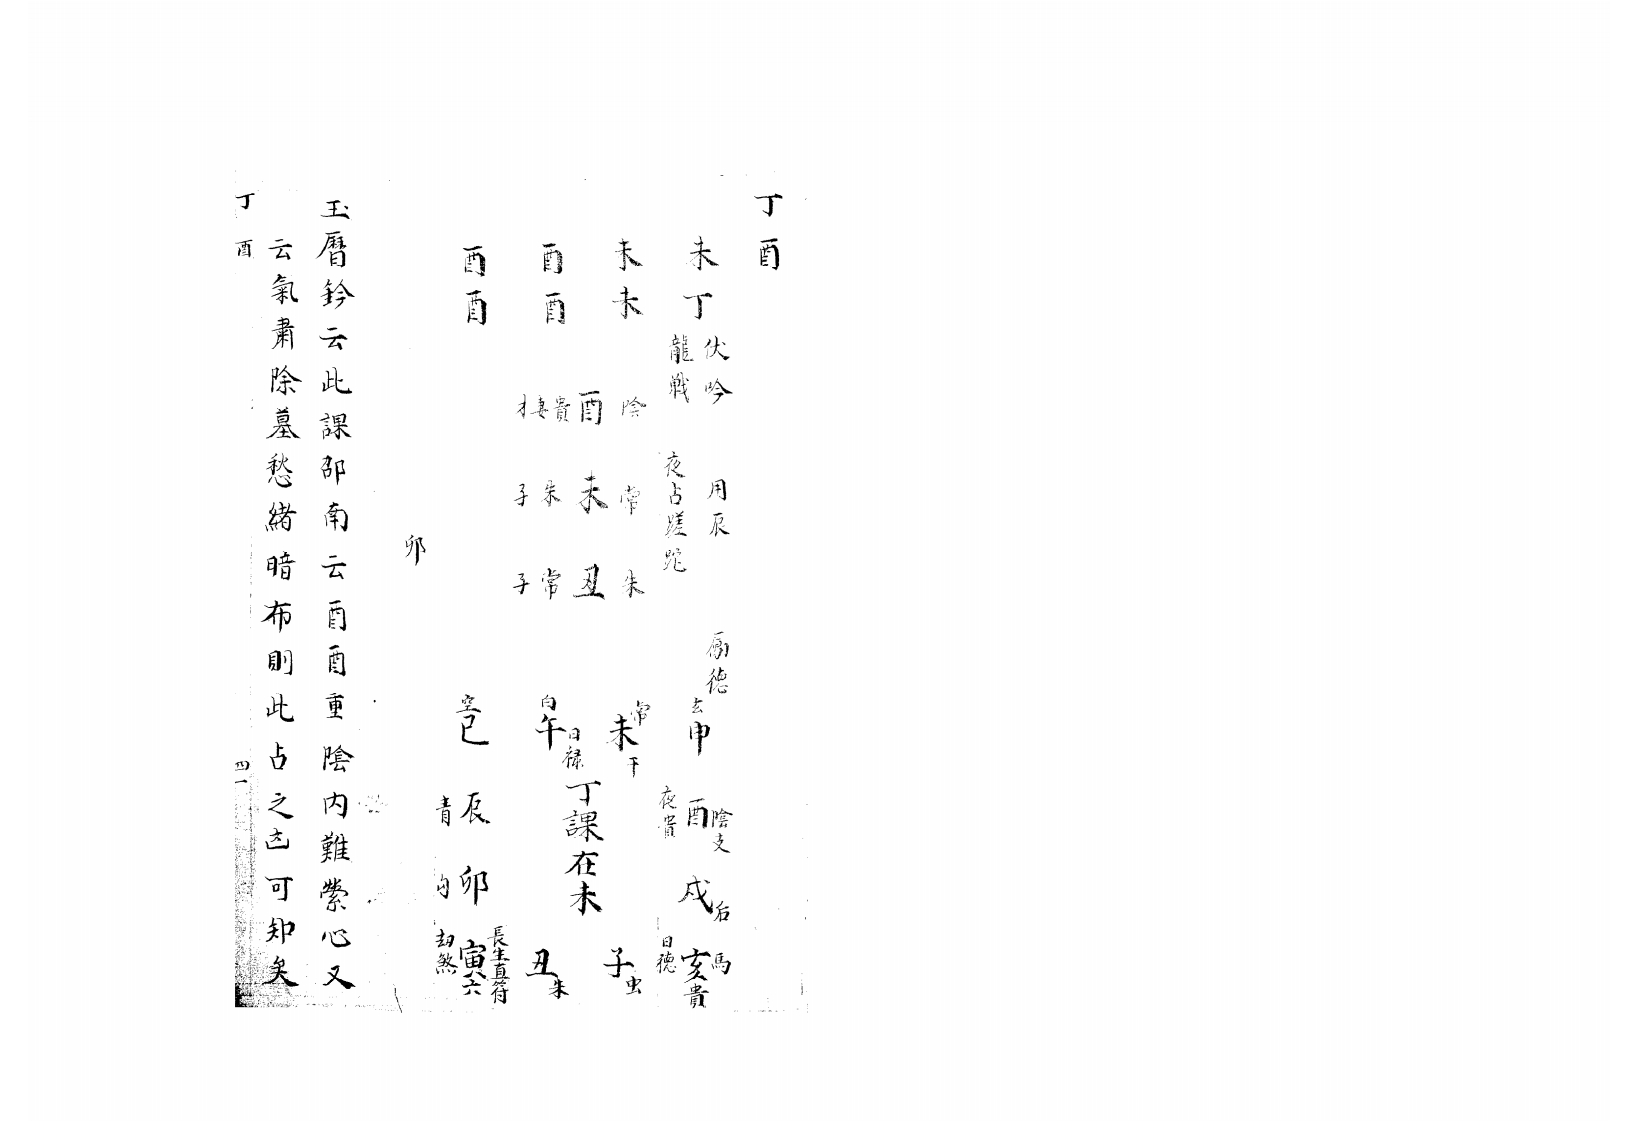 丁酉
未丁
伏吟
龍戰
用辰
夜占蹉跎
勵德
未未
酉酉
酉酉
陰酉貴妻才
常未朱子
朱丑常子
卯
玄申
陰支酉夜貴
戌后
馬亥貴日德
常未干
子虫
白午日祿
丁課在未
丑朱
空巳
辰青
卯勾
長生直符寅六劫煞
玉曆鈐云此課邵南云酉酉重陰内難縈心又
云氣肅除墓愁緒暗布則此占之㐫可知矣
丁酉
四一